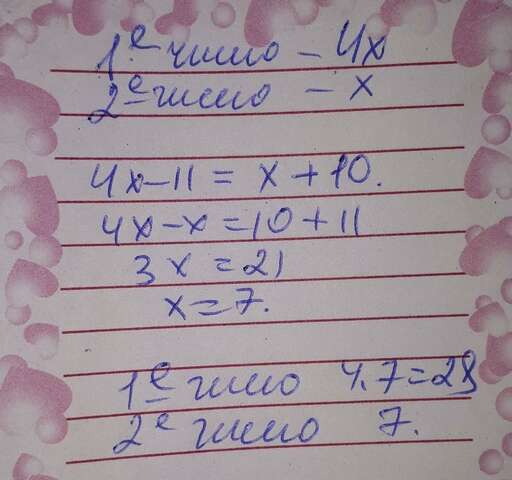 1е число – 4x
2е число – x
4x – 11 = x + 10.
4x – x = 10 + 11
3x = 21
x = 7.
1е число 4.7 = 28
2е число 7.